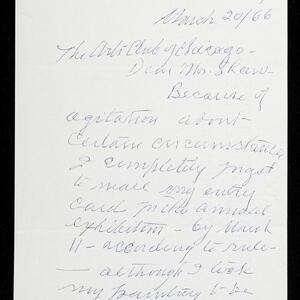 March 20/66
The Arts Club of Chicago -
Dear Mr. Shaw -
Because of
agitation about
certain circumstance
I completely forgot
to mail my entry
card for the annual
exhibition - by March
11 - according to rule -
- although I took
my painting to be